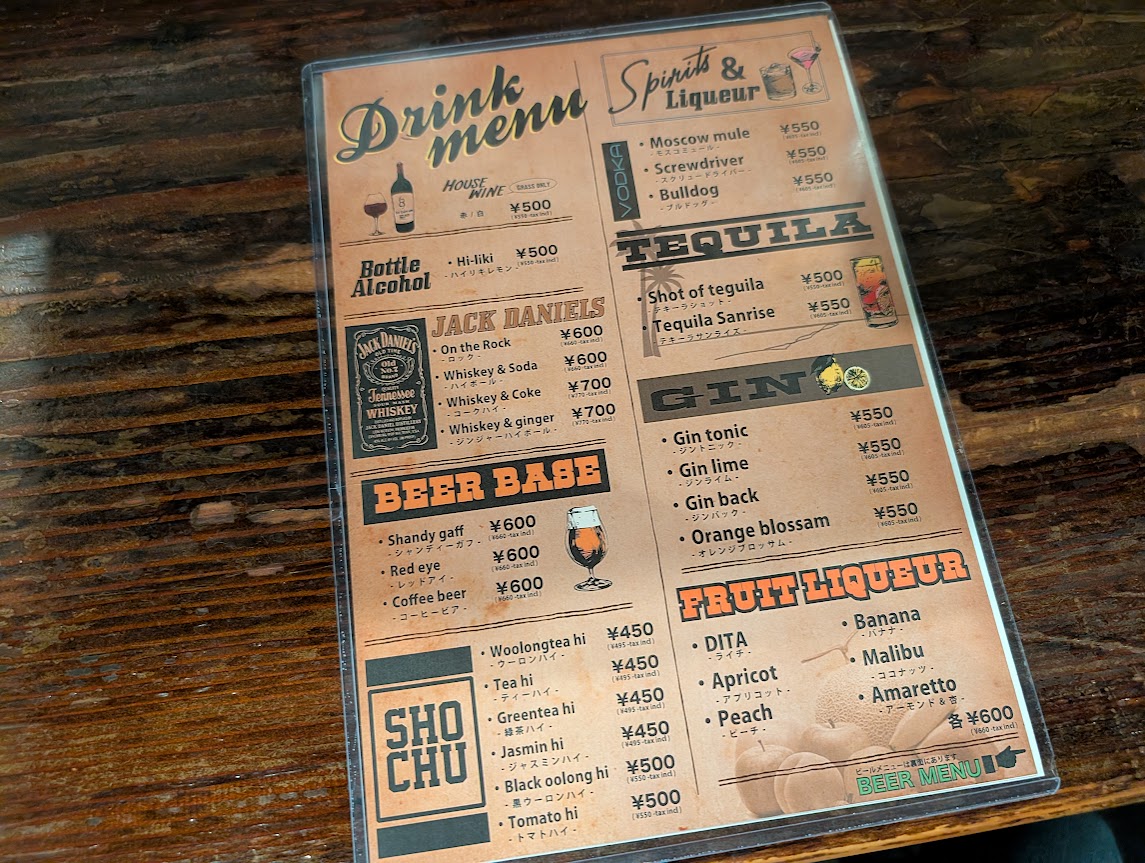 Drink
menu
HOUSE
WINE
GRASS ONLY
赤 / 白
¥500
(¥550-tax incl)
Bottle
Alcohol
・Hi-liki ¥500
- ハイリキレモン - (¥550-tax incl)
JACK DANIEL'S
OLD TIME
Old
No.7
BRAND
QUALITY
Tennessee
SOUR MASH
WHISKEY
JACK DANIELS
・On the Rock ¥600
- ロック - (¥660-tax incl)
・Whiskey & Soda ¥600
- ハイボール - (¥660-tax incl)
・Whiskey & Coke ¥700
- コークハイ - (¥770-tax incl)
・Whiskey & ginger ¥700
- ジンジャーハイボール - (¥770-tax incl)
BEER BASE
・Shandy gaff ¥600
- シャンディーガフ - (¥660-tax incl)
・Red eye ¥600
- レッドアイ - (¥660-tax incl)
・Coffee beer ¥600
- コーヒービア - (¥660-tax incl)
SHO
CHU
・Woolongtea hi ¥450
- ウーロンハイ - (¥495-tax incl)
・Tea hi ¥450
- ティーハイ - (¥495-tax incl)
・Greentea hi ¥450
- 緑茶ハイ - (¥495-tax incl)
・Jasmin hi ¥450
- ジャスミンハイ - (¥495-tax incl)
・Black oolong hi ¥500
- 黒ウーロンハイ - (¥550-tax incl)
・Tomato hi ¥500
- トマトハイ - (¥550-tax incl)
Spirits &
Liqueur
VODKA
・Moscow mule ¥550
- モスコミュール - (¥605-tax incl)
・Screwdriver ¥550
- スクリュードライバー - (¥605-tax incl)
・Bulldog ¥550
- ブルドッグ - (¥605-tax incl)
TEQUILA
・Shot of teguila ¥500
- テキーラショット - (¥550-tax incl)
・Tequila Sanrise ¥550
- テキーラサンライズ - (¥605-tax incl)
GIN
・Gin tonic ¥550
- ジントニック - (¥605-tax incl)
・Gin lime ¥550
- ジンライム - (¥605-tax incl)
・Gin back ¥550
- ジンバック - (¥605-tax incl)
・Orange blossam ¥550
- オレンジブロッサム - (¥605-tax incl)
FRUIT LIQUEUR
・DITA
- ライチ -
・Apricot
- アプリコット -
・Peach
- ピーチ -
・Banana
- バナナ -
・Malibu
- ココナッツ -
・Amaretto
- アーモンド & 杏 -
各 ¥600
(¥660-tax incl)
ビールメニューは裏面にあります
BEER MENU